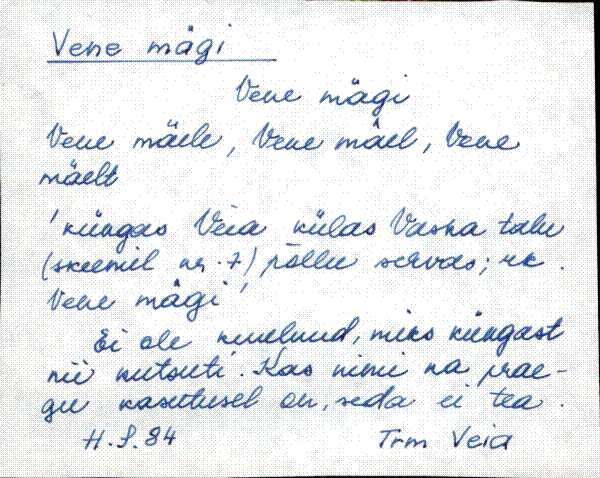 Vene mägi
Vene mägi
Vene mäele, Vene mäel, Vene
mäelt
'küngas Veia külas Vaska talu
(skeemil nr. 7) põllu servas; rk.
Vene mägi'
Ei ole kuulnud, miks küngast
nii kutsuti. Kas nimi ka prae-
gu kasutusel on, seda ei tea.
H. S. 84 Trm Veia